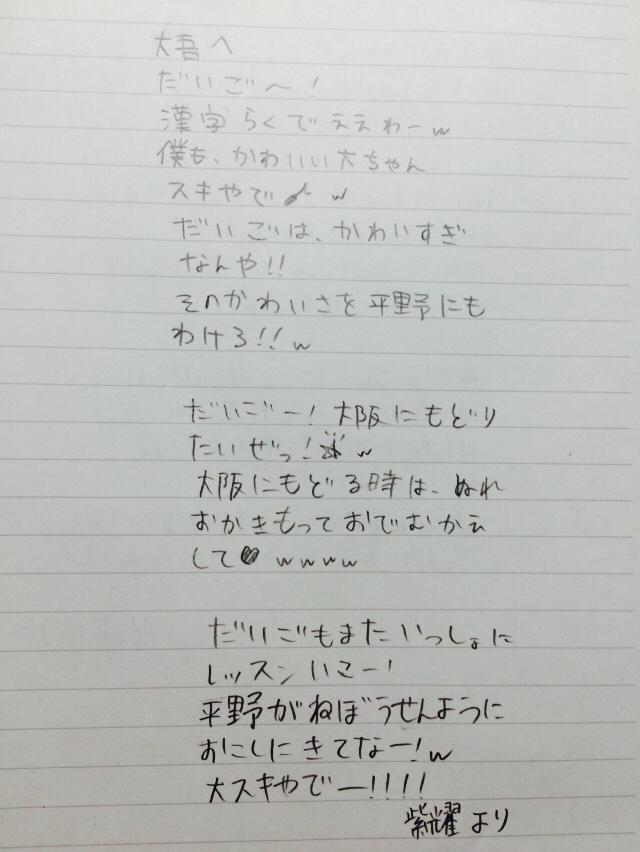 大吾へ
だいご〜!
漢字らくでええわーw
僕も、かわいい大ちゃん
スキやで w
だいごは、かわいすぎ
なんや!!
そのかわいさを平野にも
わけろ!!w
だいごー!大阪にもどり
たいぜっ! w
大阪にもどる時は、ぬれ
おかきもっておでむかえ
して♥wwww
だいごもまたいっしょに
レッスンいこー!
平野がねぼうせんように
おこしにきてなー!w
大スキやでー!!!!
紫耀より